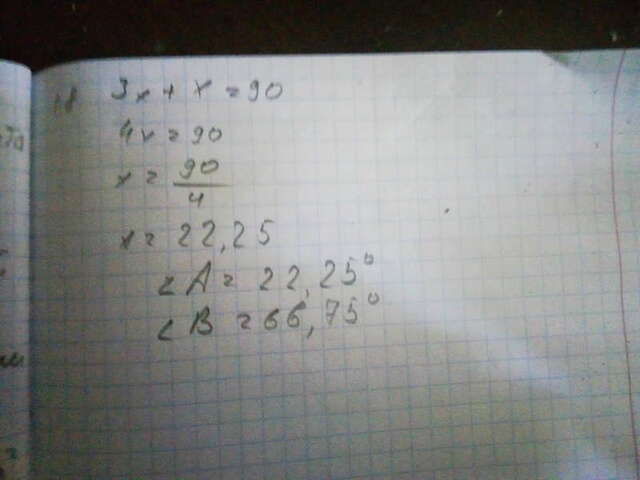 3x + x = 90
4x = 90
x = 90/4
x = 22,25
∠A = 22,25°
∠B = 66,75°